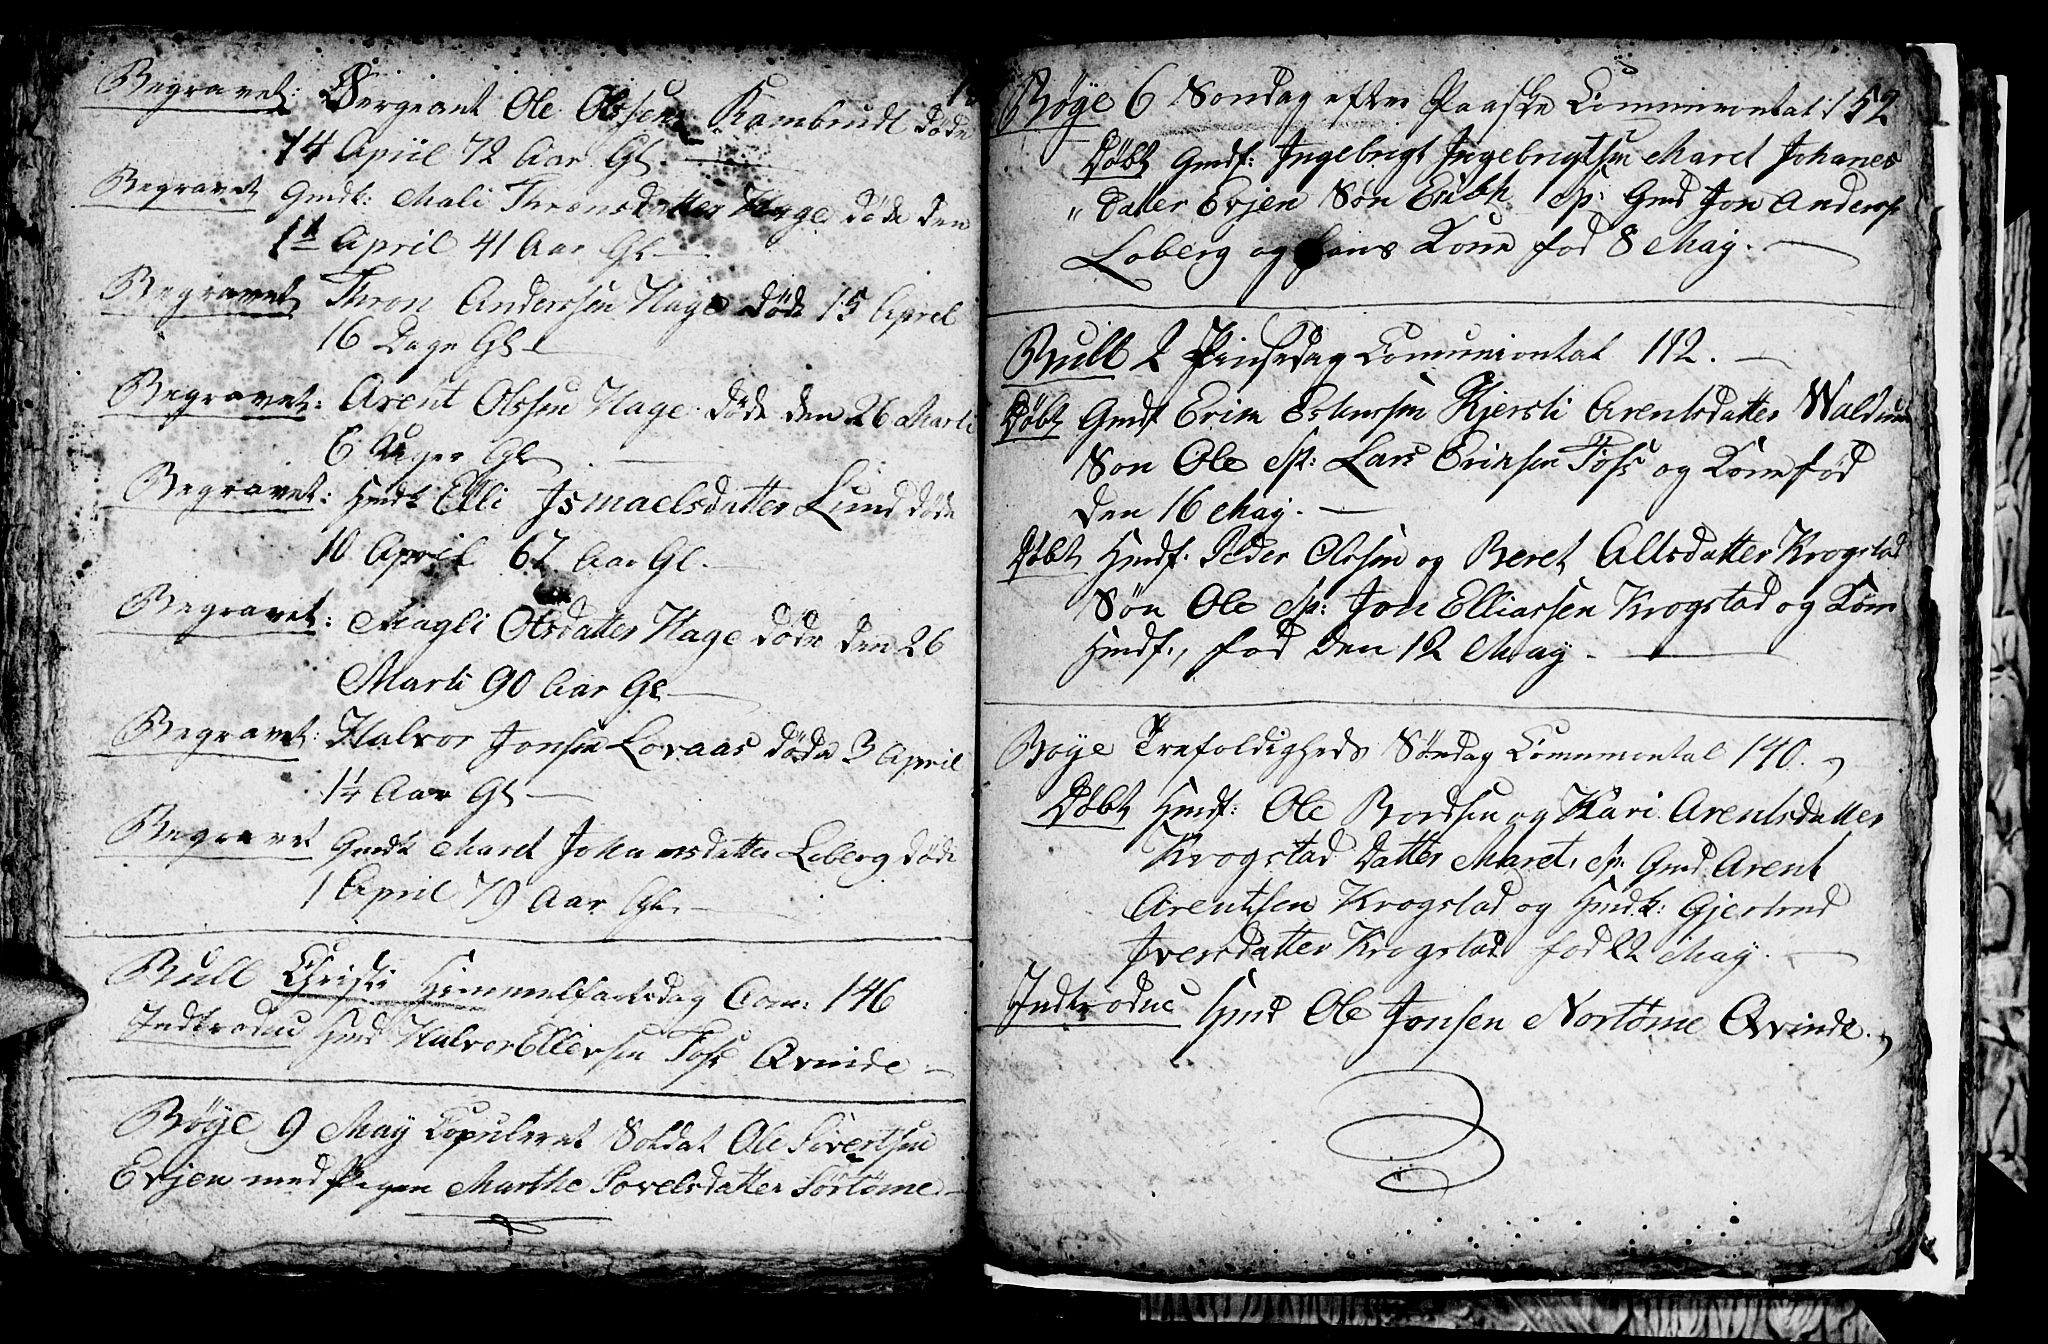 Begravet: Sergeant Ole Olssen Rambrudt døde
14 Apriil 72 Aar Gl.
Begravet Gmdk: Mali Thronsdatter Hage døde den
11 April 41 Aar Gl
Begravet Thron Anderssen Hage døde 15 April
16 Dage Gl
Begravet: Arent Olssen Hage døde den 26 Marti
6 Uger Gl
Begravet: Hmdk Elli Ismaelsdatter Lund døde
10 April 67 Aar Gl.
Begravet: Magli Olsdatter Hage døde den 26
Marti 90 Aar Gl
Begravet: Halvor Jonsen Lovaas døde 3 April
14 Aar Gl
Begravet Gmdk Maret Johansdatter Loberg døde
1 April 79 Aar Gl.
Bull Christi Himmelfartsdag Com: 146
Indtroduc Hmd Halvor Ellevsen Foss Qvinde
Böye 9 May Copuleret Soldat Ole Sivertsen
Evjen med Pigen Marthe Povelsdatter Sørtøme
Böye 6 Søndag efter Paaske Communiontal: 152
Døbt Gmdf: Ingebrigt Ingebrigtsen Maret Johanes
" datter Evjen Søn fp: Gmd Jon Anderss
Loberg og hans Kone fød 8 May.
Bull 2 Pintsedag Comuniontal 112.
Døbt Gmdf Erik Estensen Kjersti Arentsdatter
Søn Ole fp: Lars Eriksen Foss og Kone fød
den 16 May.
Døbt Hmdf: Peder Olssen og Beret Allsdatter Krogstad
Søn Ole fp: Jon Elliassen Krogstad og Kone
Hmdf., fød den 12 May.
Böye Trefoldigheds Søndag Communiontal 140.
Døbt Hmdf: Ole Bordsen og Kari Arentsdatter
Krogstad datter Maret, fp: Gmd Arent
Arentsen Krogstad og Hmdk: Gjertrud
Iversdatter Krogstad fød 22 May.
Indtroduc Hmd Ole Jonsen Nortøme Qvinde.